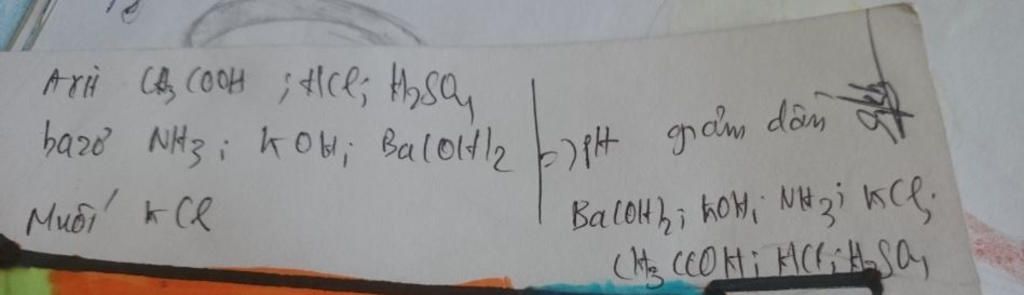 Axit CH3COOH ; HCl; H2SO4
bazơ NH3; KOH; Ba(OH)2
Muối KCl
b) pH giảm dần
Ba(OH)2; KOH; NH3; KCl;
CH3COOH; HCl; H2SO4